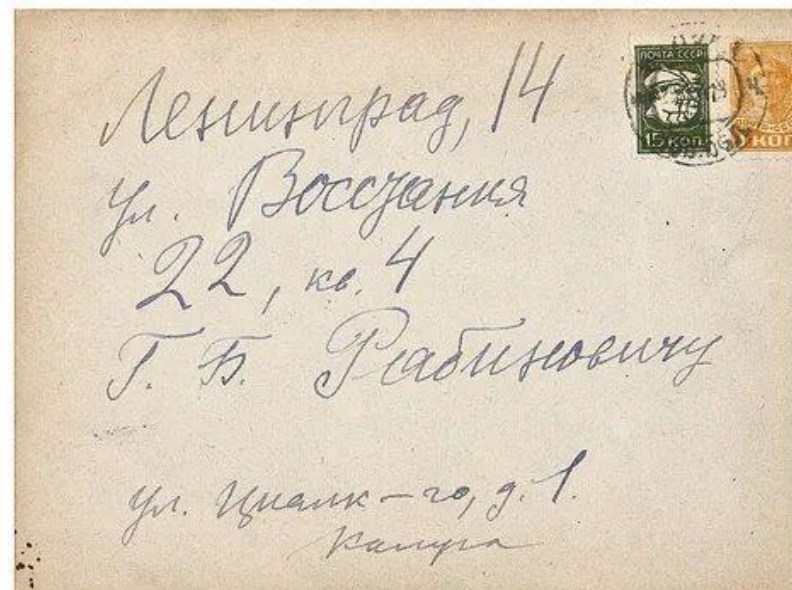 ПОЧТА СССР
15 КОП.
КОП
Ленинград, 14
ул. Восстания
22, кв. 4
Г. Б. Рабиновичу
ул. Циалк-го, д. 1.
Калуга